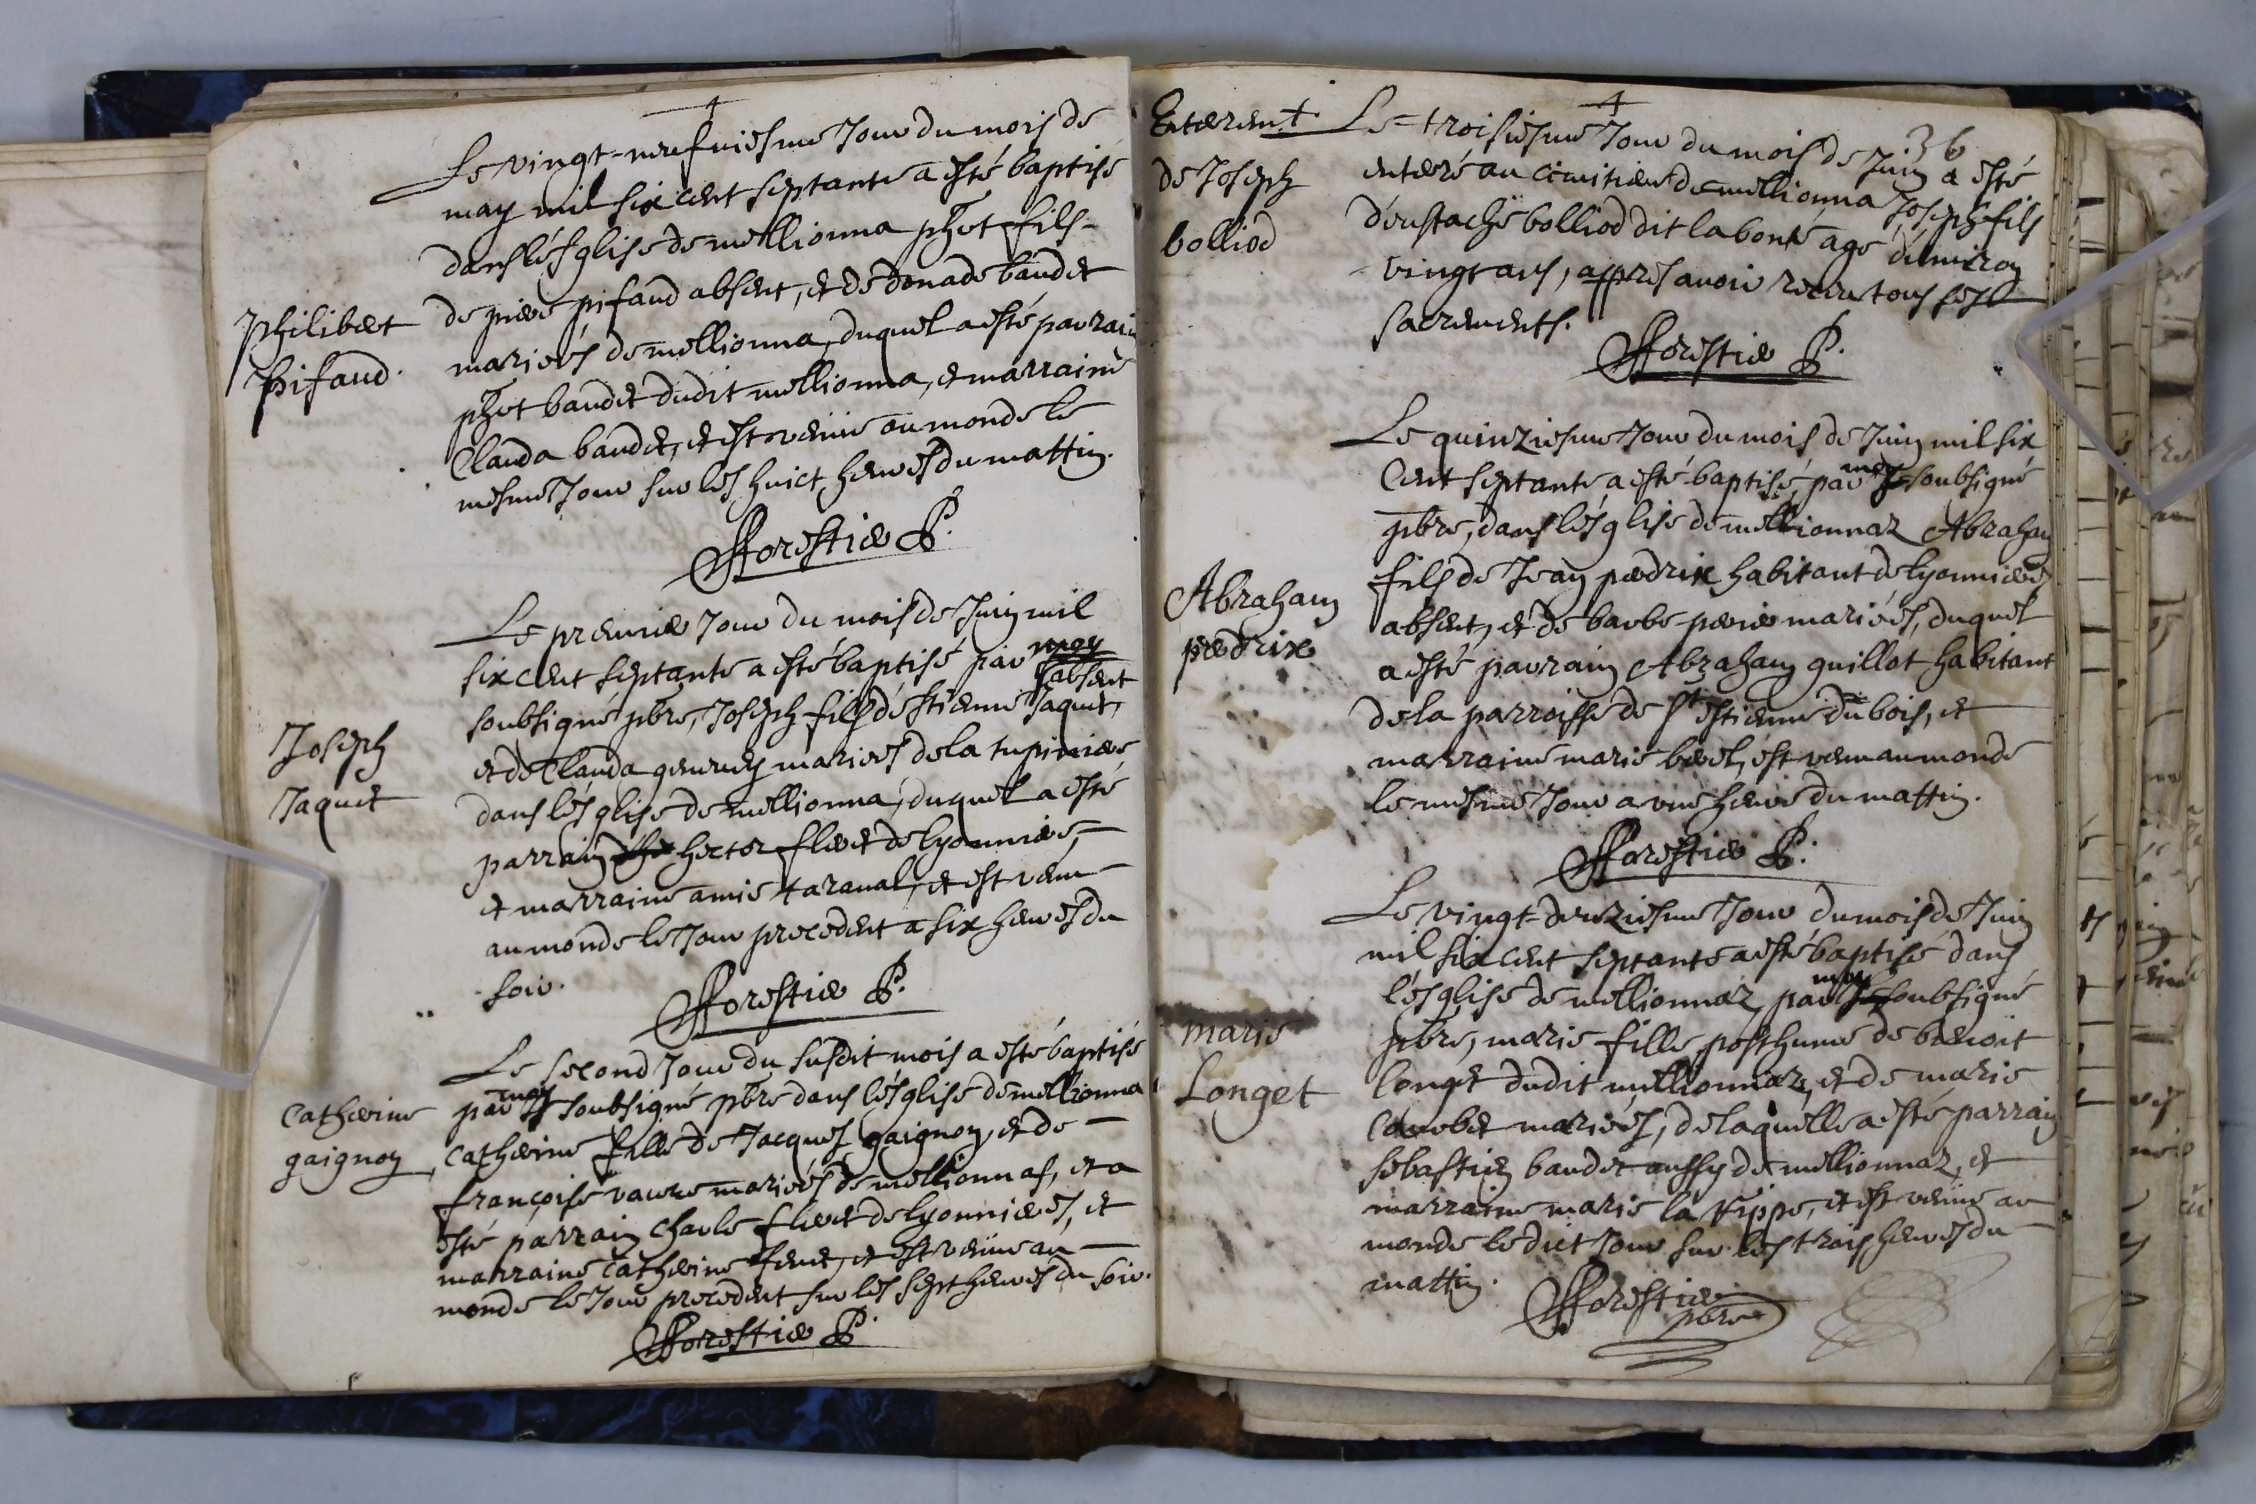 Le vingt-neufviesme Jour du mois de
may mil six cent septante a esté baptisé
dans lésglise de mellionna phet fils
Philibert
Pifaud.
de piere pifaud absent, et de donade baudet
mariés de mellionna, duquel a esté parrain
phet baudet dudit mellionna, et marraine
Clauda baudet, et est venüe au monde le
mesme Jour sur les huict heures du mattin.
fforestier P.
Le premier Jour du mois de Juin mil
six cent septante a esté baptisé par moy
soubsigné pbre, Joseph fils d'éstienne Jaquet, absent
Joseph
Jaquet
et de Clauda mariés de la tupiniere
dans lésglise de mellionna, duquel a esté
parrain hector de lyonniere,
et marraine amie taraval, et est venu
au monde le Jour precedent a six heures du
soir.
fforestier P.
Le second Jour du susdit mois a esté baptisé
Catherine
gaignon
par moy soubsigné pbre dans lésglise de mellionna
Catherine fille de Jacques gaignon, et de
françoise mariés de mellionnas, et a
esté parrain Charle de lyonnieres, et
marraine Catherine et est venüe au
monde le Jour precedent sur les sept heures du soir.
fforestier P.
36
Enterem.t
de Joseph
bolliod
Le troisiesme Jour du mois de Juin a esté
enteré au cimitiere de mellionna Joseph fils
d'éustache bolliod dit labonté agé d'émiron
vingt ans, appres avoir receu tous ses
sacrements.
fforestier P.
Le quinziesme Jour du mois de Juin mil six
Cent septante a esté baptisé, par moy soubsigné
pbre, dans lésglise de mellionnaz Abraham
Abraham
perdrix
fils de Jean perdrix habitant de lyonnieres
absent, et de barbe mariés, duquel
a esté parrain Abraham guillot habitant
de la parroisse de St estienne du bois, et
marraine marie est venu au monde
le mesme Jour a une heure du mattin.
fforestier P.
Le vingt-deuziesme Jour du mois de Juin
mil six cent septante a esté baptisé dans
lésglise de mellionnaz, par moy soubsigné
marie
Longet
pbre, marie fille posthume de benoit
longet dudit mellionnaz, et de marie
mariés, de laquelle a esté parrain
sebastien baudet aussy de mellionnaz, et
marraine marie la Vippe, et est venüe au
monde ledict Jour sur les trois heures du
mattin.
fforestier
pbre